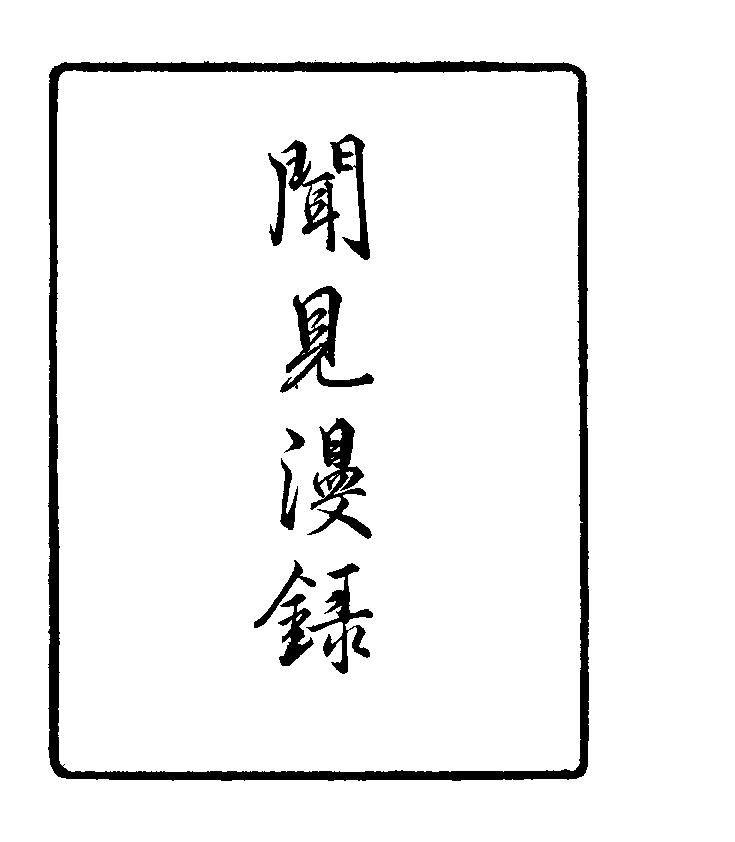 聞見漫錄